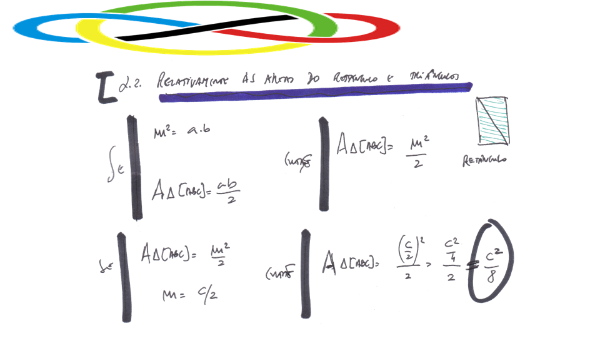 2.2. RELATIVAMENTE ÀS ÁREAS DO RETÂNGULO E TRIÂNGULOS
m² = a.b
Se
AΔ[ABC] = ab/2
AΔ[ABC] = m²/2
RETÂNGULO
Se
AΔ[ABC] = m²/2
m = c/2
AΔ[ABC] = (c/2)²/2 = c²/4/2 = c²/8